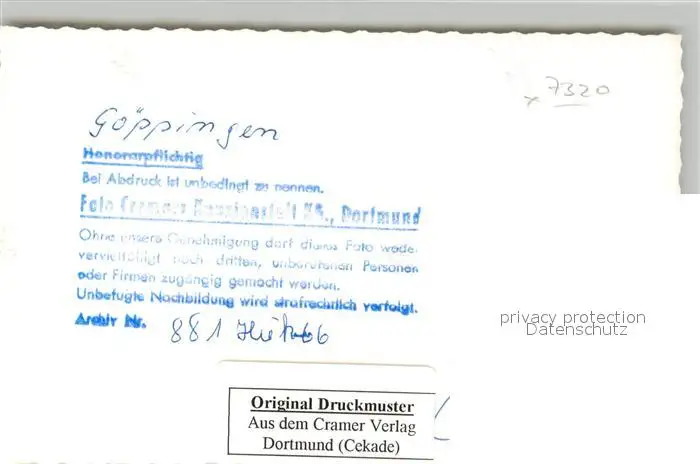 7320
Göppingen
Honorarpflichtig
Bei Abdruck ist unbedingt zu nennen.
Foto Cramers Kunstanstalt KG., Dortmund
Ohne unsere Genehmigung darf dieses Foto weder
vervielfältigt noch dritten, unberufenen Personen
oder Firmen zugängig gemacht werden.
Unbefugte Nachbildung wird strafrechtlich verfolgt.
Archiv Nr. 881
privacy protection
Datenschutz
Original Druckmuster
Aus dem Cramer Verlag
Dortmund (Cekade)